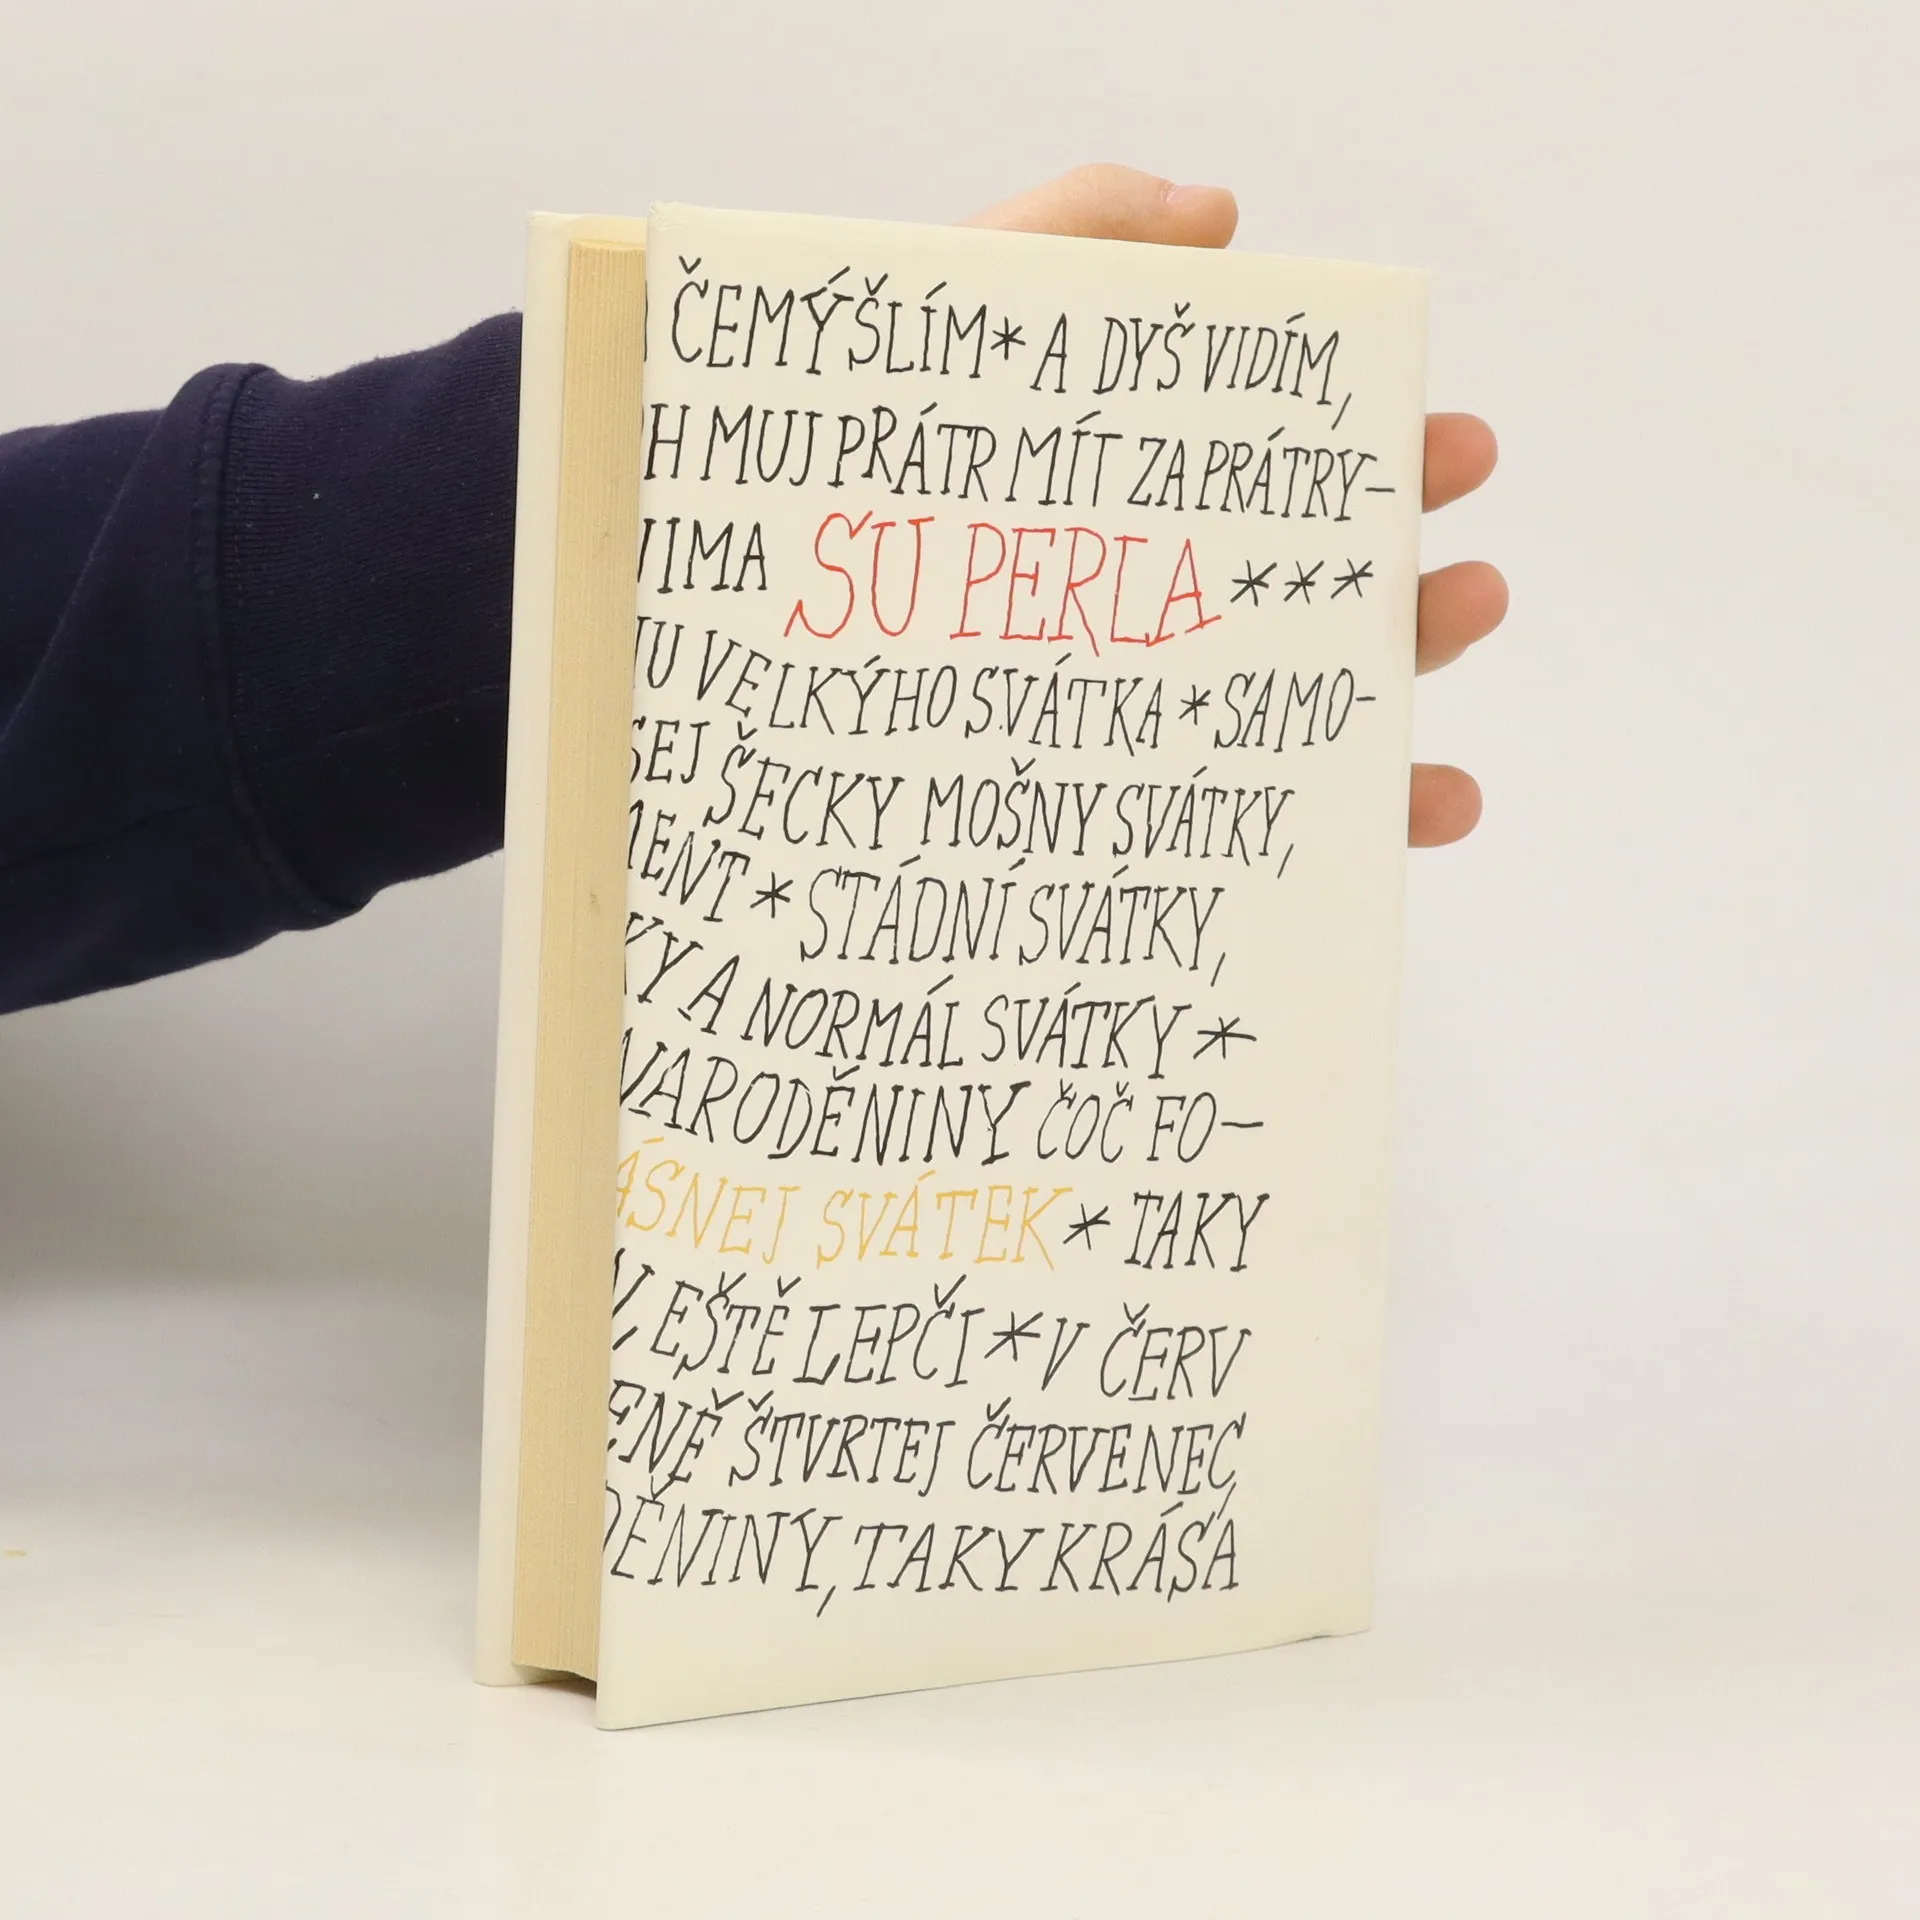 ČEMÝŠLÍM * A DYŠ VIDÍM,
H MUJ PRÁTR MÍT ZA PRÁTRY-
IMA SU PERLA ***
U VELKÝHO SVÁTKA * SAMO-
SEJ ŠECKY MOŠNY SVÁTKY,
MENT * STÁDNÍ SVÁTKY,
KY A NORMÁL SVÁTKY *
NARODĚNINY ČOČ FO-
ÁSNEJ SVÁTEK * TAKY
EŠTĚ LEPČI * V ČERV
ENĚ ŠTVRTEJ ČERVENEC,
DĚNINY, TAKY KRÁSA